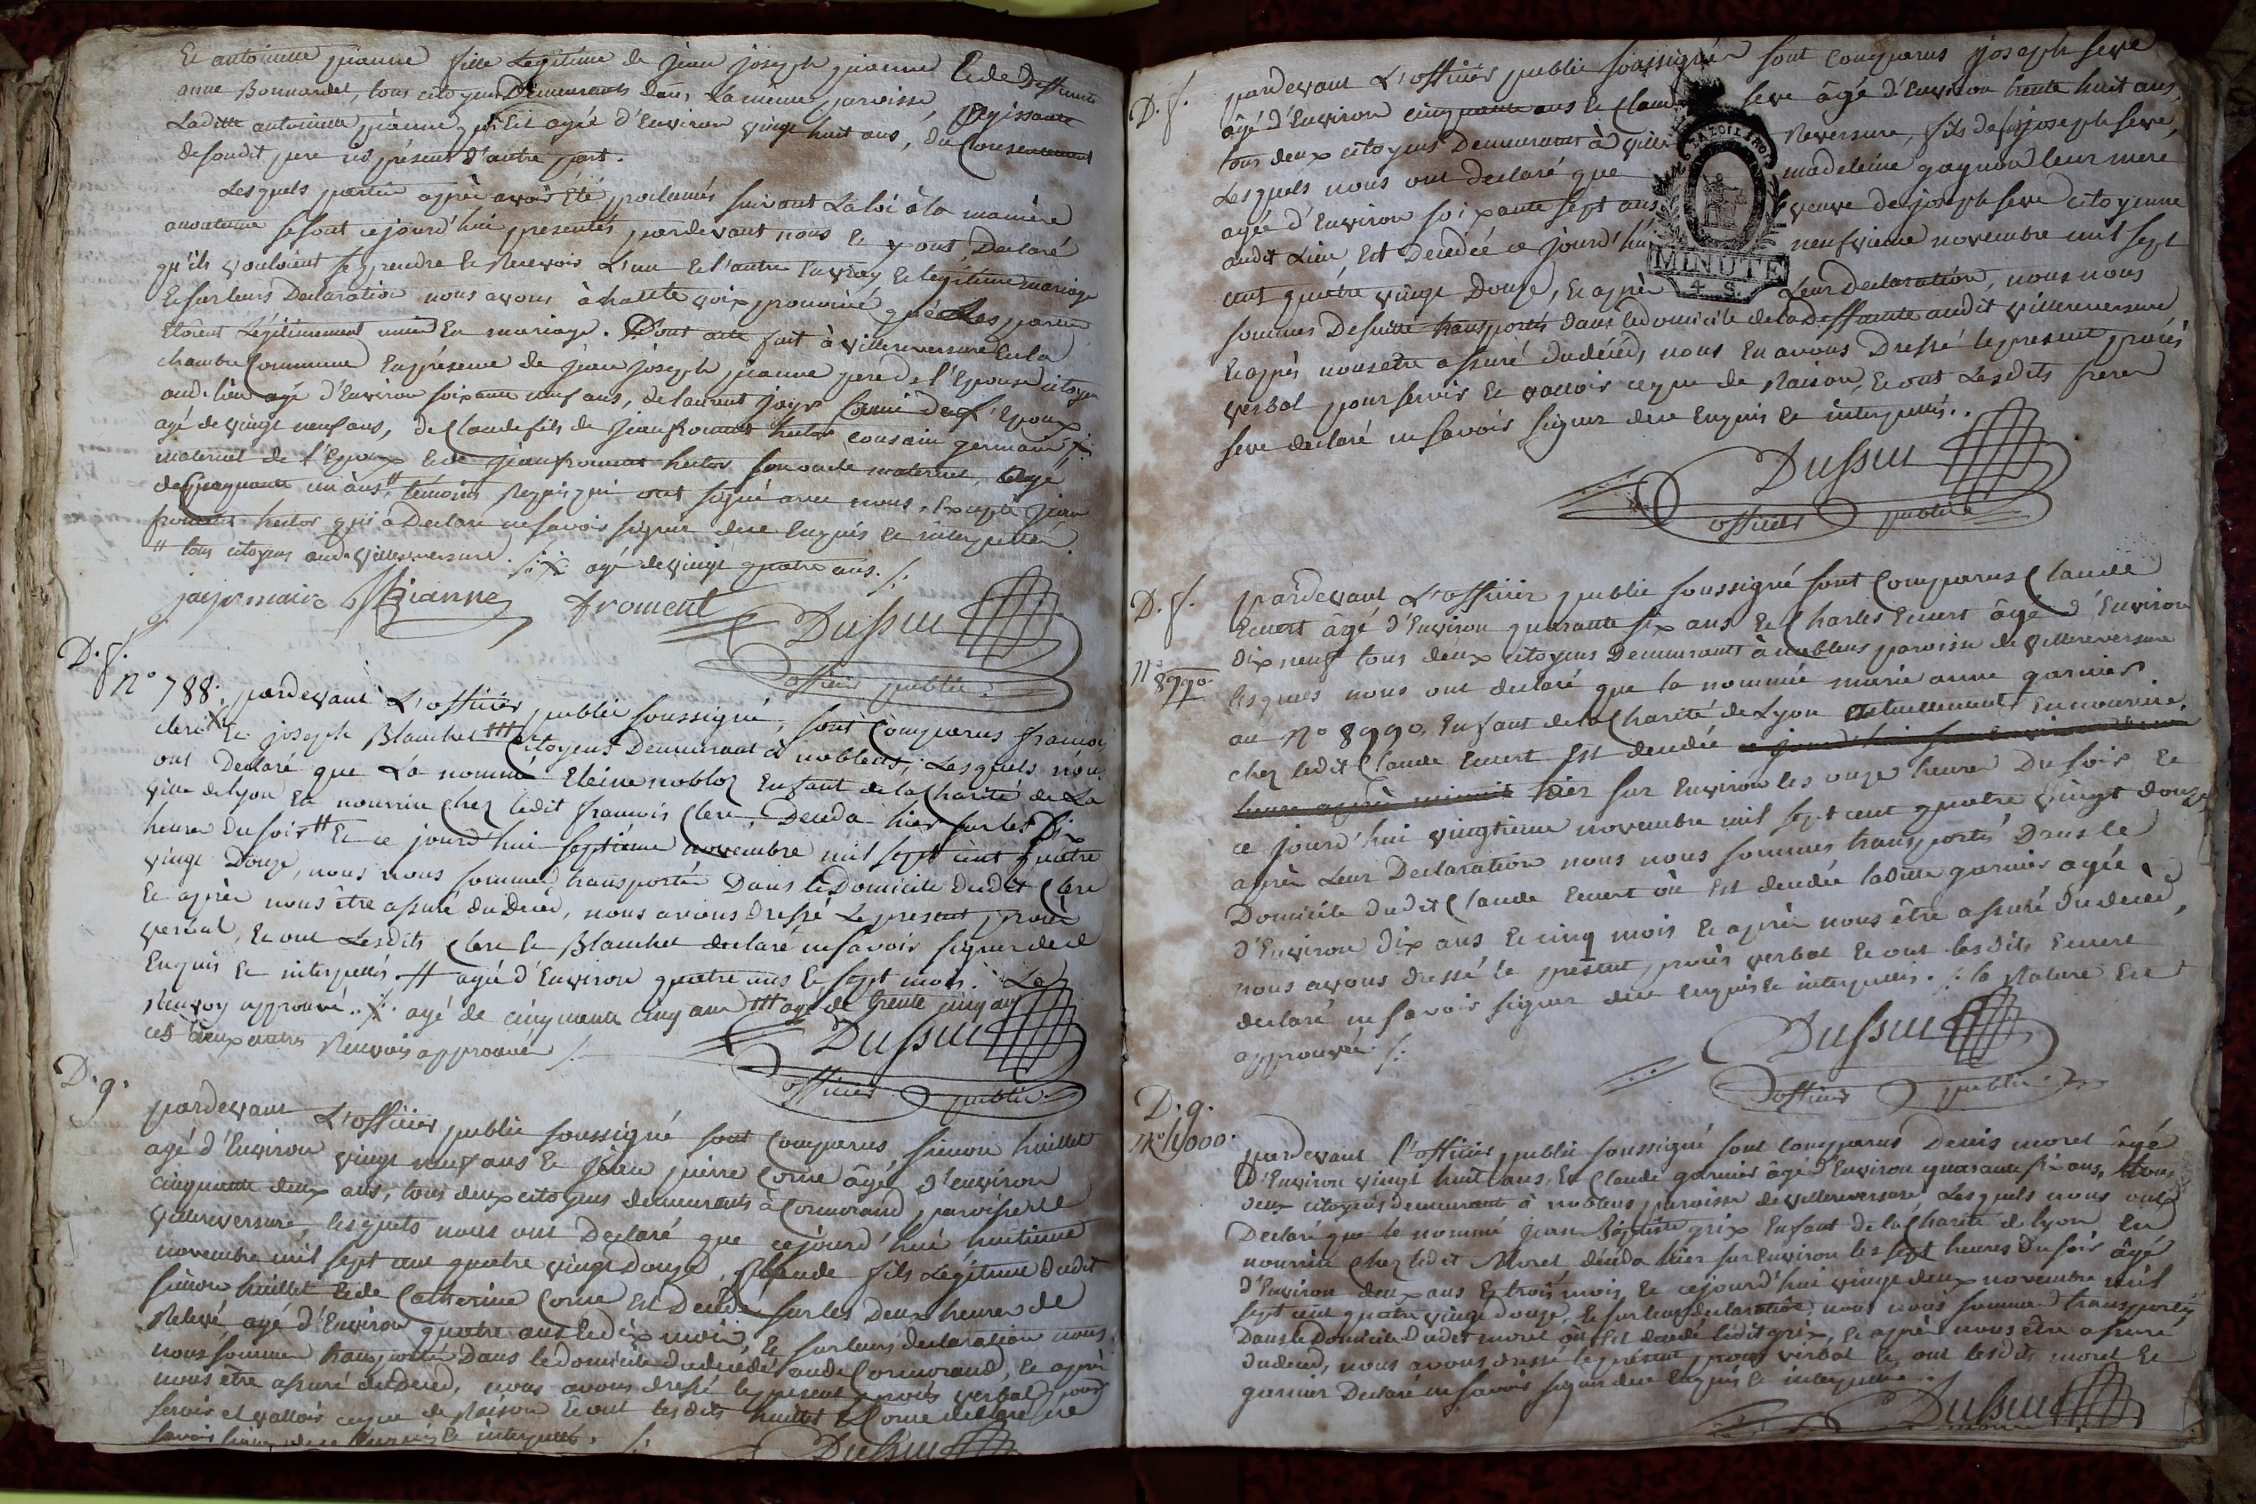 Et antoinette pianne fille Legitime de jean joseph pianne Et de Deffunte
anne Bonnardet, tous citoyens Demeurants dans la même paroisse
Laditte antoinette pianne qui Est agée d'Environ vingt huit ans, du Consentement
de sondit pere icy présent d'autre part.
Lesquels parties après avoir été proclamés suivant La loi à la manière
se sont cejourd'hui présentés pardevant nous Et y ont Declaré
qu'ils vouloient se prendre Et Recevoir L'un Et l'autre En vray Et légitime mariage
Et sur leurs Declaration nous avons à haute voix prononcé que Les parties
étoient Légitimement unies En mariage. Dont acte fait à villereversure En la
chambre Commune En présence de jean joseph pianne pere de l'Epouse citoyen
audit lieu agé d'Environ soixante neuf ans, de laurent jayr de l'Epoux
agé de vingt neuf ans, de Claude fils de jean froment cousin germain
maternel de l'Epoux Et de jean froment son oncle maternel, agé
de Cinquante un ans, témoins Requis qui ont signé avec nous, Excepté jean
froment qui à Declaré ne savoir signer de ce Enquis Et interpellé.
tous citoyens aud. villereversure. agé de vingt quatre ans.
jayr maire Pianne froment Dussuc
officier public
D. f.
N° 788. pardevant L'officier public soussigné, sont Comparus françois
clerc Et joseph Blanchet Citoyens Demeurant à noblens, Lesquels nous
ont Declaré que La nommé Eleine noblot Enfant de la Charité de La
ville de lyon En nourrice chez ledit françois Clerc, Deceda hier sur les Dix
heures du soir Et ce jourd'hui septième novembre mil sept cent quatre
vingt Douze, nous nous sommes transportés Dans le Domicile dudit Clerc
Et après nous être assuré du Décès, nous avons dressé Le present procès
verbal, Et ont Lesdits Clerc Et Blanchet declaré ne savoir signer de ce
Enquis Et interpellés agé d'Environ quatre ans Et sept mois. Le
Renvoy approuvé. agé de cinquante cinq ans agé de trente cinq ans
ces deux autres Renvois approuvés
Dussuc
officier public
D. g.
pardevant L'officier public soussigné sont Comparus simon huillet
agé d'Environ vingt neuf ans Et jean pierre Corne âgé d'environ
cinquante deux ans, tous deux citoyens demeurants à Cormorand paroisse de
villereversure, lesquels nous ont Declaré que cejourd'hui huitième
novembre mil sept cent quatre vingt douze, Claude fils Légitime dudit
simon huillet Et de Catherine Corne Est Décédé sur les Deux heures de
Relevé, agé d'Environ quatre ans Et dix mois, Et sur leurs declaration nous
nous sommes transportés Dans le domicile du décédé aud. Cormorand, Et après
nous être assuré du Décès, nous avons dressé le present procès verbal pour
servir et valloir ce que de Raison Et ont lesdits huillet Et Corne declaré ne
savoir signer de ce Enquis Et interpellés.
Dussuc
D. f.
pardevant L'officier public soussigné sont Comparus joseph seve
âgé d'Environ cinquante ans Et Claude seve âgé d'Environ trente huit ans,
tous deux citoyens Demeurants à villereversure, fils de joseph seve,
Lesquels nous ont declaré que madeleine gagnon leur mere
agée d'Environ soixante sept ans veuve de joseph seve citoyenne
audit Lieu Est Decedée ce jourd'hui neufvieme novembre mil sept
cent quatre vingt Douze, Et après Leur declaration, nous nous
sommes De suitte transportés Dans le domicile de la Deffunte audit villereversure
Et après nous être assuré du décès, nous En avons Dressé le present procès
verbal pour servir Et valloir ce que de Raison, Et ont Lesdits freres
seve declaré ne savoir signer de ce Enquis Et interpellés.
MINUTE
4 S.
Dussuc
officier public
D. f.
N° 8990.
pardevant L'officier public soussigné sont Comparus Claude
Ecuert âgé d'Environ quarante six ans Et Charles Ecuert âgé d'Environ
dix neuf tous deux citoyens Demeurants à noblens paroisse de villereversure
lesquels nous ont declaré que la nommée marie anne garnier
au N° 8990, Enfant de la Charité de Lyon actuellement En nourrice
chez ledit Claude Ecuert Est decedée ce jourd'hui
heure après minuit hier sur Environ les onze heures Du soir Et
ce jourd'hui vingtieme novembre mil sept cent quatre vingt douze
après Leur Declaration nous nous sommes transportés Dans le
Domicile dudit Claude Ecuert où Est decedée laditte garnier agée
d'Environ Dix ans Et cinq mois Et après nous être assuré du decès,
nous avons dressé le present procès verbal Et ont lesdits Ecuert
declaré ne savoir signer de ce Enquis Et interpellés. la Rature Est
approuvée.
Dussuc
officier public
D. g.
N° 4000.
pardevant l'officier public soussigné sont comparus Denis moret âgé
D'Environ vingt huit ans, Et Claude garnier âgé d'Environ quarante six ans, tous
deux citoyens demeurants à noblens paroisse de villereversure, Lesquels nous ont
Declaré que le nommé jean Baptiste grix Enfant de la Charité de lyon En
nourrice chez ledit Moret, déceda hier sur Environ les sept heures Du soir âgé
d'Environ deux ans Et trois mois, Et cejourd'hui vingt deux novembre mil
sept cent quatre vingt douze, Et sur leur declaration, nous nous sommes transportés
Dans le Domicile Dudit moret où Est decedé ledit grix, Et après nous être assuré
du decès, nous avons dressé le présent procès verbal Et ont lesdits moret Et
garnier Declaré ne savoir signer de ce Enquis Et interpellés.
Dussuc